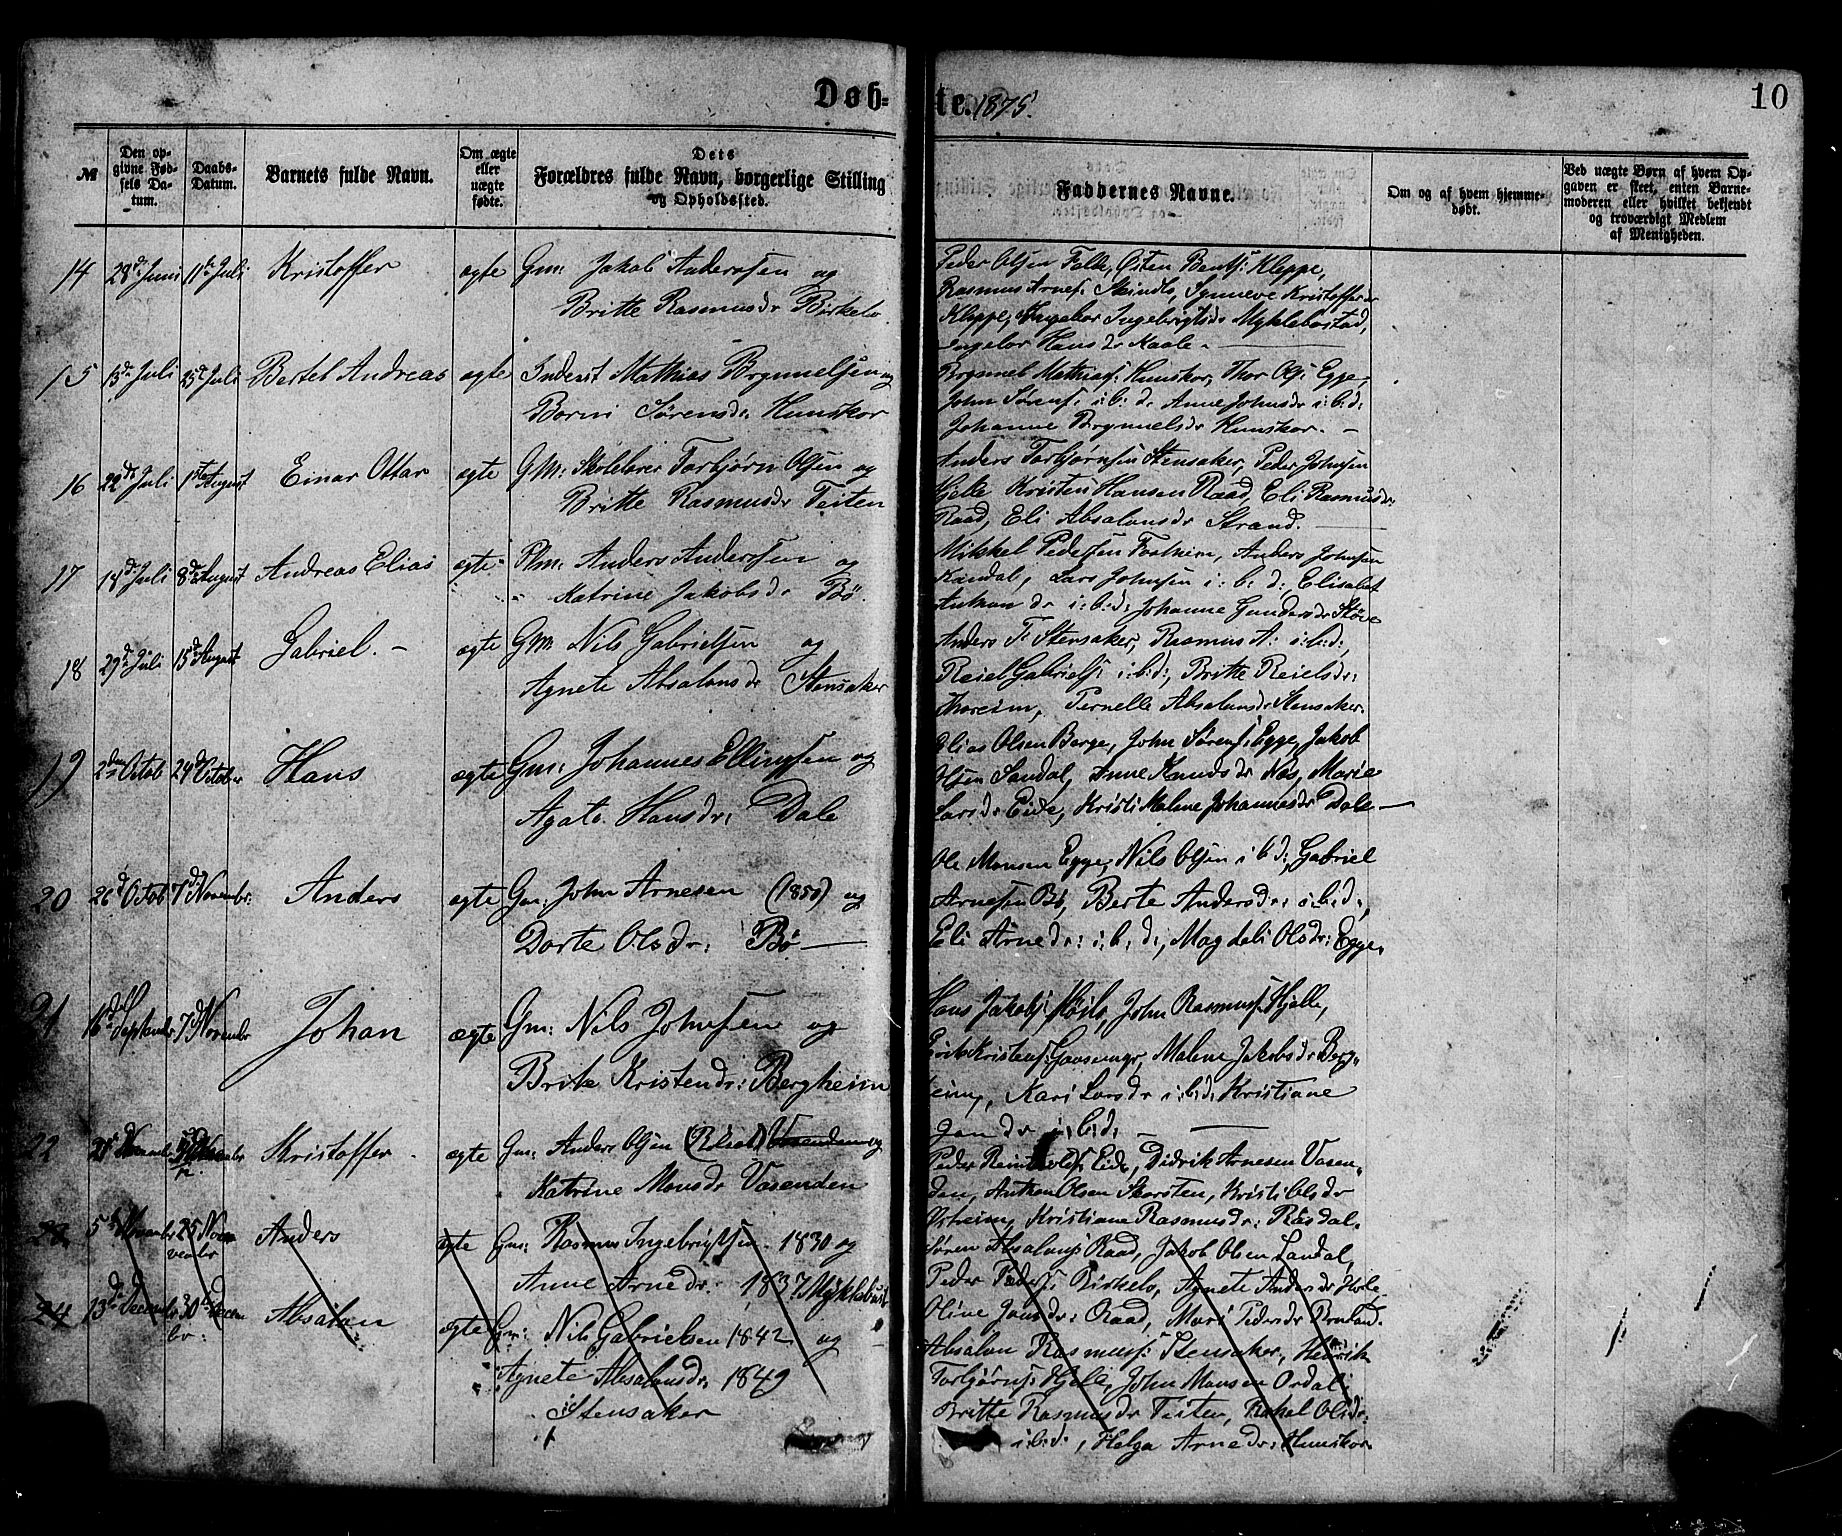 Døb-
te. 1875.
10
№
Den op-
givne Fød-
sels Da-
tum.
Daabs-
Datum.
Barnets fulde Navn.
Om ægte
eller
uægte
fødte.
Dets
Forældres fulde Navn, borgerlige Stilling
og Opholdssted.
Faddernes Navne.
Om og af hvem hjemme-
døbt.
Ved uægte Børn af hvem Op-
gaven er skeet, enten Barne-
moderen eller hvilket bekjendt
og troværdigt Medlem
af Menigheden.
14 28de Juni 11te Juli Kristoffer ægte Gm: Jakob Anderssen og
Britte Rasmusdr Birkelo
Peder Olsen Folde, Østen Bents: Kleppe,
Rasmus Arnes: Skindlo, Synneve Kristofferdr
Kleppe, Ingebor Ingebrigtsdr Myklebostad,
Ingebor Hansdr Kaale
15 13de Juli 25de Juli Bertel Andreas ægte Inderst Mathias Brynnelsen og
Borni Sørensdr: Hunskor
Brynnel Mathias: Hunskor, Thor Ols: Egge,
John Sørens: i:b:d: Anne Johnsdr i:b:d:
Johanne Brynnelsdr Hunskor.
16 22de Juli 1ste August Einar Ottar ægte Gm: Skolelærer Torbjørn Olsen og
Britte Rasmusdr Teiten
Anders Torbjørnsen Stensaker, Peder Johnsen
Hjelle Kristen Hansen Raad, Eli Rasmusdr:
Raad, Eli Absalonsdr Strand.
17 14de Juli 8de August Andreas Elias ægte Plm: Anders Anderssen og
Katrine Jakobsdr Bø.
Mikkel Pedersen Fosheim, Anders Johnsen
Kandal, Lars Johnsen i:b:d: Elisabet
Anthondr i:b:d: Johanne Gundersdr Støve
18 29de Juli 15de August Gabriel. ægte Gm Nils Gabrielsen og
Agnete Absalonsdr Stensaker
Anders T: Stensaker, Rasmus A: i:b:d:,
Reiel Gabriels: i:b:d:, Britte Reielsdr:
Thoreim, Pernelle Absalonsdr Stensaker.
19 2den Octob 24de October Hans ægte Gm: Johannes Ellingsen og
Agate Hansdr: Dale
Elias Olsen Berge, John Sørens: Egge, Jakob
Olsen Sandal, Anne Knudsdr Nøs, Marie
Larsdr Eide, Kristi Malene Johannesdr Dale
20 26de Octob 7de Novembr: Anders ægte Gm: John Arnesen (1850) og
Dorte Olsdr: Bø
Ole Monsen Egge, Nils Olsen i:b:d:, Gabriel
Arnesen Bø, Berte Andersdr: i:b:d:,
Eli Arnedr: i:b:d:, Magdeli Olsdr: Egge.
21 16de Septembr 7de Novembr Johan ægte Gm: Nils Johnsen og
Brite Kristendr: Bergheim
Hans Jakobs: John Rasmus: Hjelle,
Kristens: Malene Jakobsdr Berg-
heim, Kari Larsdr i:b:d: Kristiane
Jandr i:b:d:
22 Novembr Kristoffer ægte Gm: Anders Olsen og
Katrine Monsdr Vasenden
Peder Eide, Didrik Arnesen Vasen-
den, Anthon Olsen Skorsten, Kristi Olsdr
Østreim, Kristiane Rasmusdr: Røsdal.
23 5te Novembr 25 Nov-
vembr Anders ægte Gm: Rasmus Ingebrigtsen 1830 og
Anne Arnedr: 1837 Myklebust
Søren Absalons Raad, Jakob Olsen Sandal,
Peder Peders: Birkelo, Agnete Andersdr
Oline Jansdr: Raad, Mari Pedersdr
24 13de Decembr 30te Decem-
br: Absalon ægte Gm: Nils Gabrielsen 1842 og
Agnete Absalonsdr. 1849
Stensaker
Absalon Rasmus: Stensaker, Henrik
Torbjørns: Hjelle, John Monsen Ordal,
Britte Rasmusdr Teiten, Rakel Olsdr:
i:b:d:, Helga Arnedr: Hunskor.